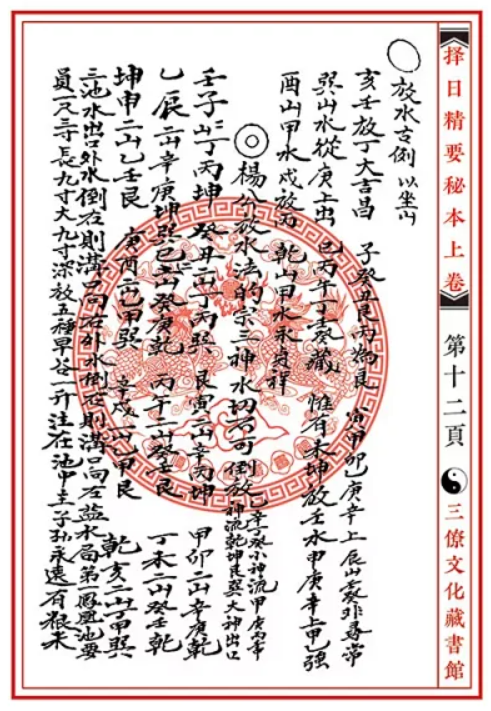 择日精要秘本上卷
第十二頁
三僚文化藏書館
放水古例 以坐山
亥壬放丁大吉昌 子癸丑艮丙為良 寅甲卯乙庚辛上 辰山壬癸非尋常
巽山水從庚上出 巳丙午丁壬癸藏 惟有未坤放壬水 申庚辛上甲乙強
酉山甲水戌放丙 乾山甲水永安祥
楊公放水法的宗三神水切不可倒放 乙辛丁癸小神流甲庚丙壬中神流乾坤艮巽大神出口
壬子二山丁丙坤 癸丑二山丁丙巽 艮寅二山辛丙坤 甲卯二山辛庚乾
乙辰二山辛庚坤 巽巳二山癸庚乾 丙午二山癸壬艮 丁未二山癸壬乾
坤申二山乙壬艮 庚酉二山乙甲巽 辛戌二山乙甲艮 乾亥二山丁甲巽
三池水出口外水倒右則溝口向右外水倒左則溝口向左盐水局第一鳳凰池要
員一尺三寸長九寸大九寸深放五種早谷一升注在池中主子孫永遠有粮米